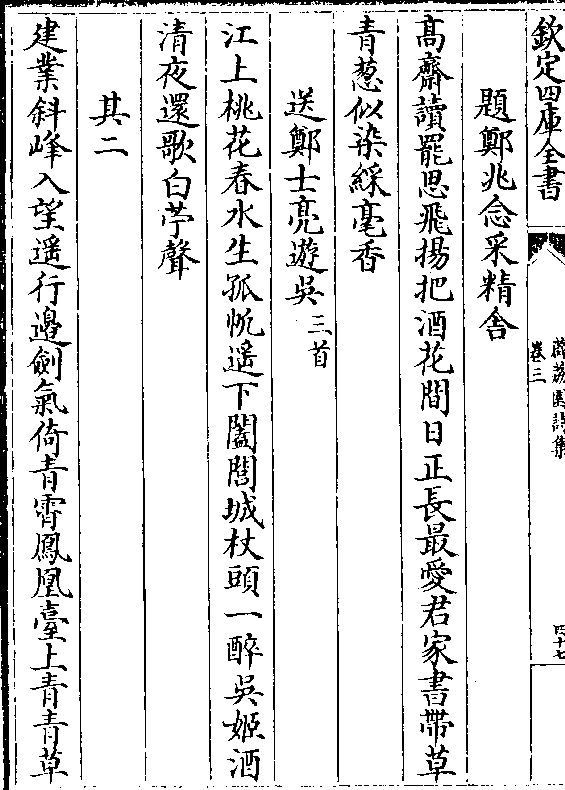 欽定四庫全書
薜荔園詩集
卷三
四十七
題鄭兆念采精舍
髙齋讀罷思飛揚把酒花間日正長最愛君家書帶草
青葱似染綵毫香
送鄭士亮遊吳三首
江上桃花春水生孤帆遥下闔閭城杖頭一醉吳姬酒
清夜還歌白苧聲
其二
建業斜峰入望遥行邉劍氣倚青霄鳳凰臺上青青草